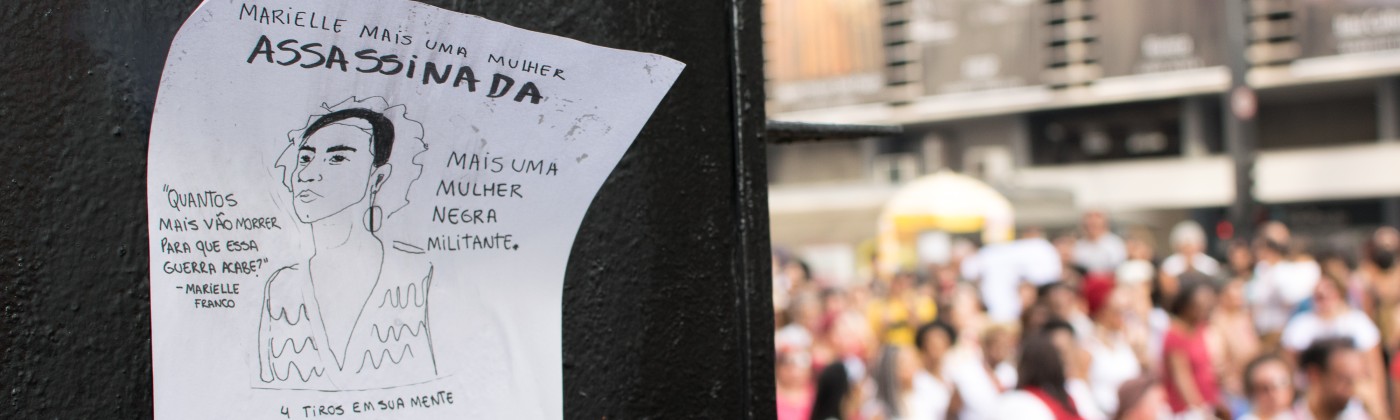 MARIELLE MAIS UMA MULHER
ASSASSINADA
"QUANTOS
MAIS VÃO MORRER
PARA QUE ESSA
GUERRA ACABE?"
- MARIELLE
FRANCO
MAIS UMA
MULHER
NEGRA
MILITANTE.
4 TIROS EM SUA MENTE